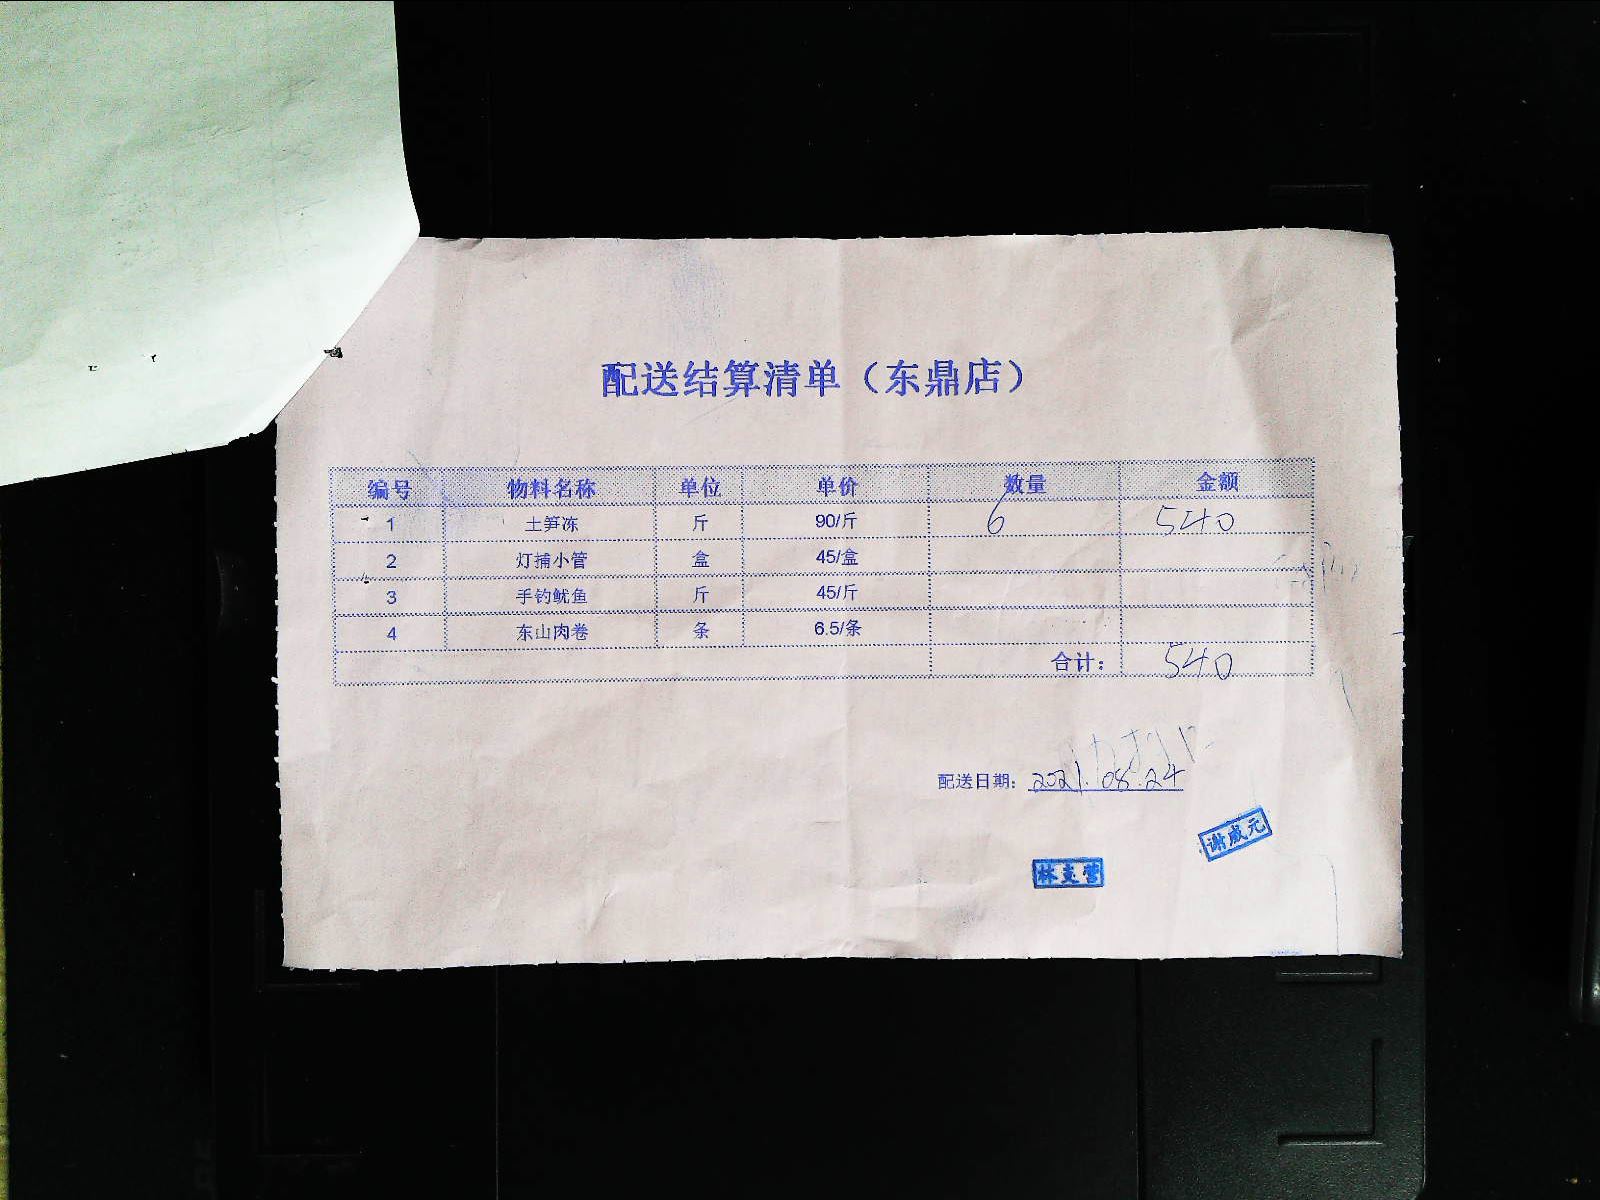 配送结算清单（东鼎店）
编号 物料名称 单位 单价 数量 金额
1 土笋冻 斤 90/斤 6 540
2 灯捕小管 盒 45/盒
3 手钓鱿鱼 斤 45/斤
4 东山肉卷 条 6.5/条
合计： 540
配送日期：2021.08.24
谢威元